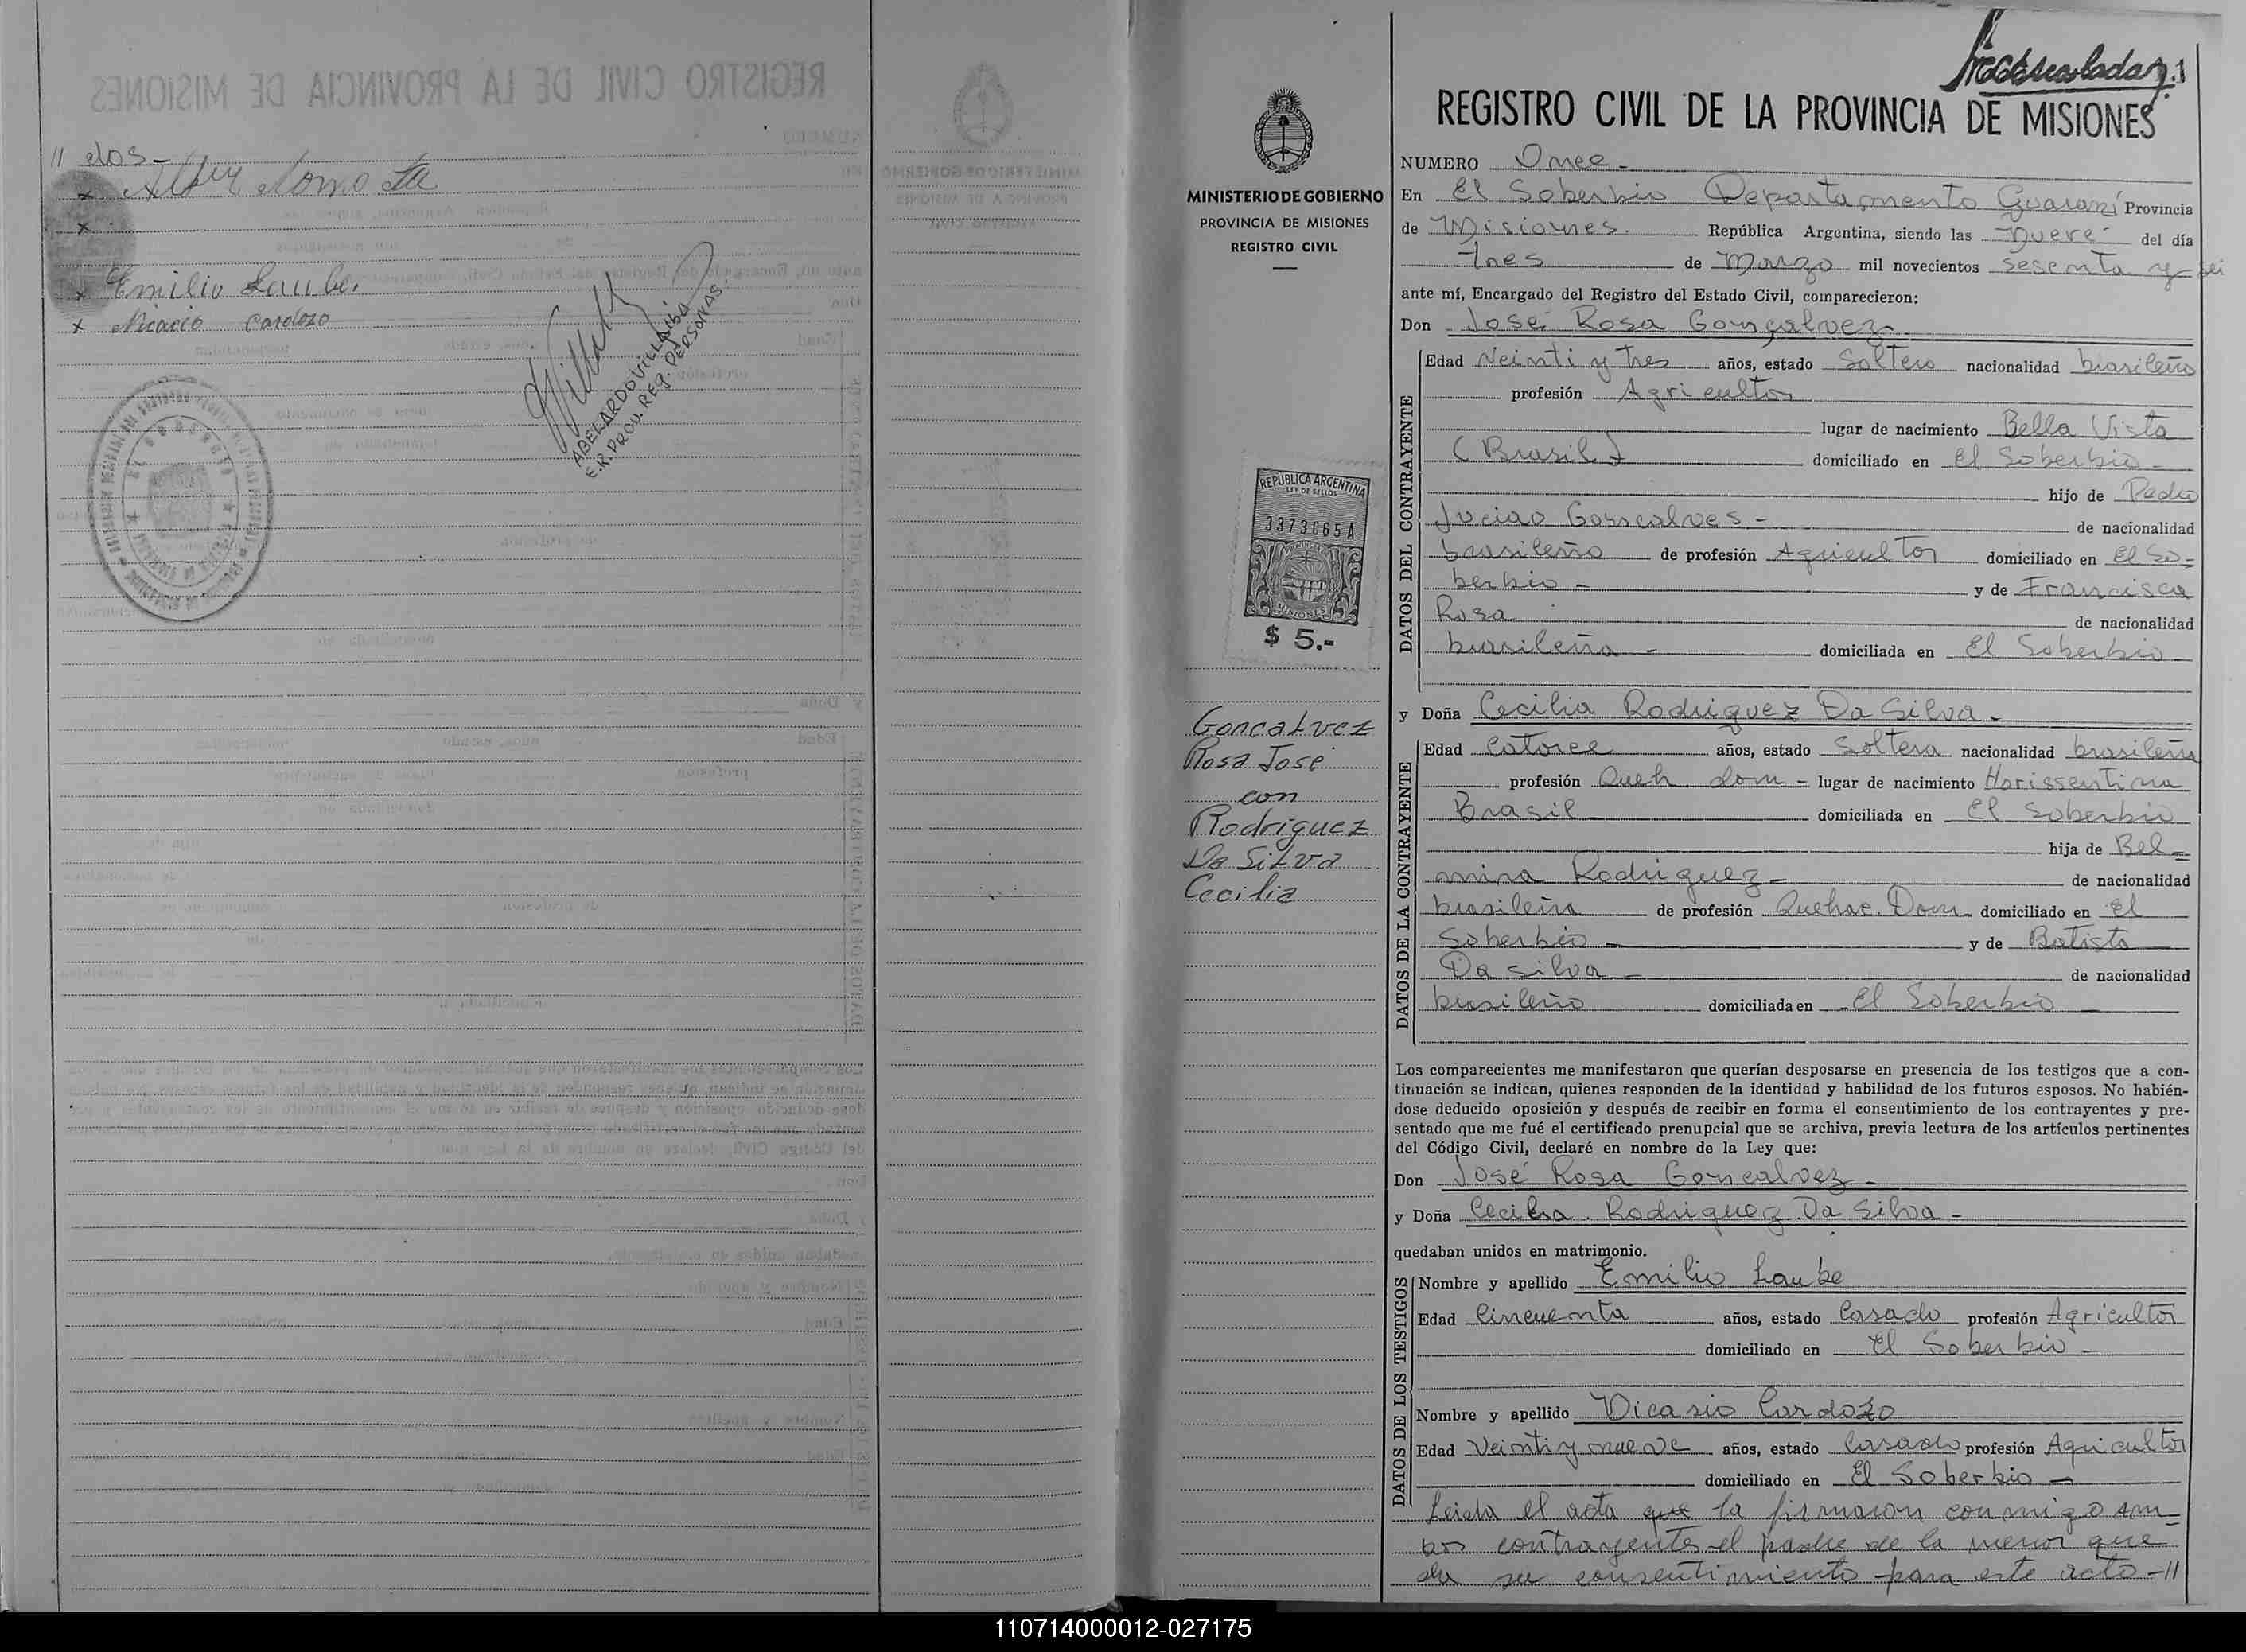 // dos -
x
x
x Emilio Laube.
x Nicacio Cardozo
ABELARDO VILLALBA
E.R. PROV. REG. PERSONAS.
MINISTERIO DE GOBIERNO
PROVINCIA DE MISIONES
REGISTRO CIVIL
REPUBLICA ARGENTINA
LEY DE SELLOS
3373065A
MISIONES
$ 5.-
Goncalvez
Rosa José
con
Rodriguez
Da Silva
Cecilia
REGISTRO CIVIL DE LA PROVINCIA DE MISIONES
NUMERO Once -
En El Soberbio Departamento Guaraní Provincia
de Misiones. República Argentina, siendo las nueve del día
tres de Marzo mil novecientos sesenta y sei
ante mí, Encargado del Registro del Estado Civil, comparecieron:
Don José Rosa Gonçalvez -
DATOS DEL CONTRAYENTE
Edad Veinti y tres años, estado Soltero nacionalidad brasileño
profesión Agricultor
lugar de nacimiento Bella Vista
(Brasil) domiciliado en El Soberbio -
hijo de Pedro
Goncalves - de nacionalidad
brasileño de profesión Agricultor domiciliado en El So-
berbio - y de Francisca
Rosa de nacionalidad
brasileña - domiciliada en El Soberbio
y Doña Cecilia Rodriguez Da Silva -
DATOS DE LA CONTRAYENTE
Edad Catorce años, estado Soltera nacionalidad brasileña
profesión Queh. dom - lugar de nacimiento Horissentina
Brasil domiciliada en El Soberbio
hija de Bel-
mira Rodriguez - de nacionalidad
brasileña de profesión Quehac. Dom - domiciliado en El
Soberbio - y de Batista
Da Silva - de nacionalidad
brasileño domiciliada en El Soberbio
Los comparecientes me manifestaron que querían desposarse en presencia de los testigos que a con-
tinuación se indican, quienes responden de la identidad y habilidad de los futuros esposos. No habién-
dose deducido oposición y después de recibir en forma el consentimiento de los contrayentes y pre-
sentado que me fué el certificado prenupcial que se archiva, previa lectura de los artículos pertinentes
del Código Civil, declaré en nombre de la Ley que:
Don José Rosa Goncalvez -
y Doña Cecilia Rodriguez Da Silva -
quedaban unidos en matrimonio.
DATOS DE LOS TESTIGOS
Nombre y apellido Emilio Laube
Edad Cincuenta años, estado Casado profesión Agricultor
domiciliado en El Soberbio -
Nombre y apellido Nicasio Cardozo
Edad Veinti y nueve años, estado Casado profesión Agricultor
domiciliado en El Soberbio -
Leida el acta que la firmaron conmigo am-
bos contrayentes el padre de la menor que
da su consentimiento para este acto -//
110714000012-027175